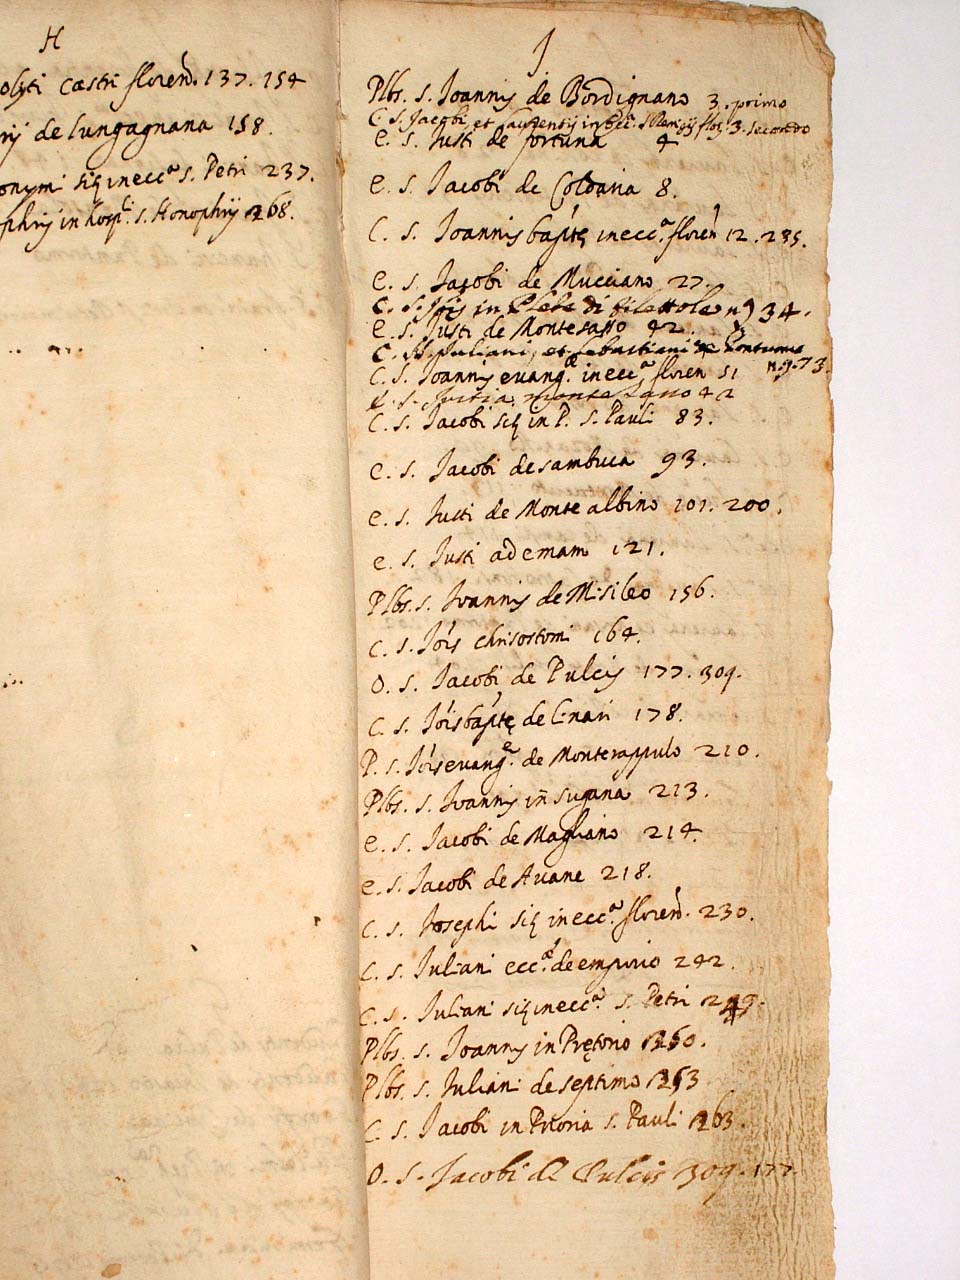 H
olyti castri floren. 137. 154
rij de Lungagnana 158.
onymi siq in ecca s. Petri 237.
phrij in hospli. s. Honophrij 268.
J
Plbs. s. Joannis de Bordignano 3. primo
C. s. Jacobi et Laurentij in 3. secondo
e. s. Justi de fortuna 4
e. s. Jacobi de Coldaria 8.
C. s. Joannis baptę in ecca. floren 12. 235.
e. s. Jacobi de Mucciano 27.
C. S. Jois in Plebe di filettole nº 34.
e. s. Justi de Montesasso 42.
C. SS. Juliani, et Sebastiani de
nº. 73.
C. s. Joannis evang. in ecca floren 51
e. s. Justi a monte sasso 42
C. s. Jacobi siq in P. s. Pauli 83.
e. s. Jacobi de sambuca 93.
e. s. Justi de Monte albino 101. 200.
e. s. Justi ad emam 121.
Plbs. s. Joannis de Misileo 156.
C. s. Jois chrisostomi 164.
O. s. Jacobi de Pulcis 177. 309.
C. s. Jois baptę de Linari 178.
P. s. Jois evang. de Monterappulo 210.
Plbs. s. Joannis in sugana 213.
e. s. Jacobi de Magliano 214.
e. s. Jacobi de Avane 218.
C. s. Josephi siq in ecca. floren. 230.
C. s. Juliani ecca. de emporio 242.
C. s. Juliani siq in ecca s. Petri
Plbs. s. Joannis in Prętorio 250.
Plbs. s. Juliani de septimo 253
C. s. Jacobi in Prioria s. Pauli 263.
O. s. Jacobi de Pulcis 309. 177